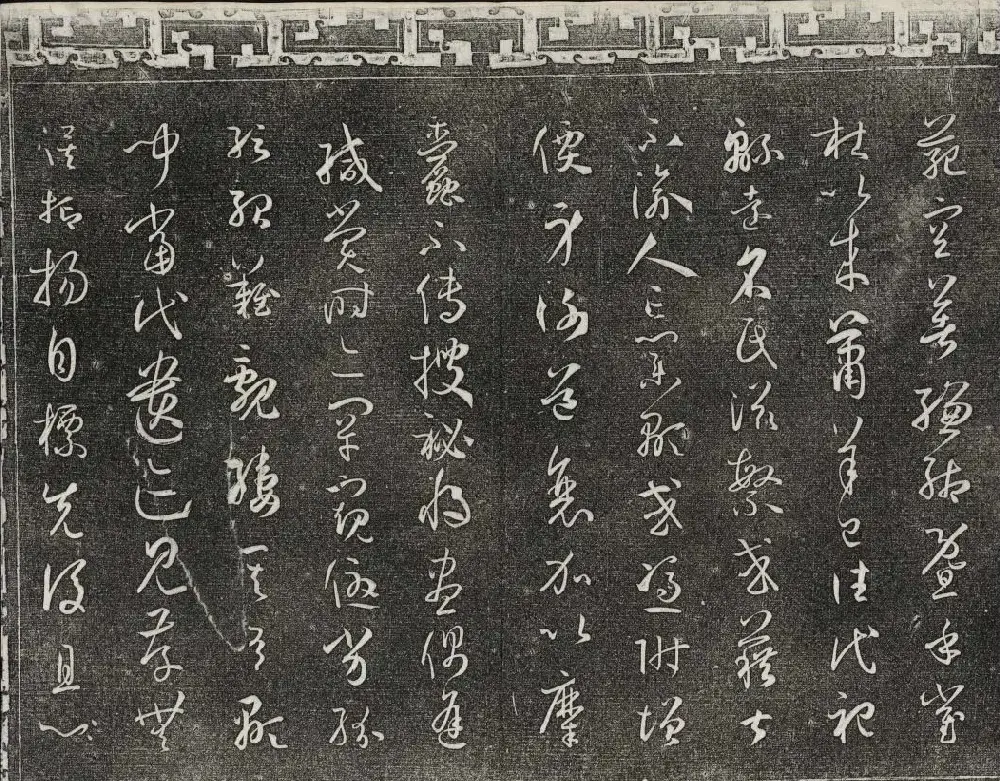 範空著縑緗暨乎崔
杜以來蕭羊已往代祀
緜遠名氏滋繁或藉甚
不渝人亡業顯或憑附增
價身謝道衰加以糜
蠹不傳搜秘將盡偶逢
緘賞時亦罕窺優劣紛
紜殆難覼縷其有顯
聞當代遺跡見存無
俟抑揚自標先後且六